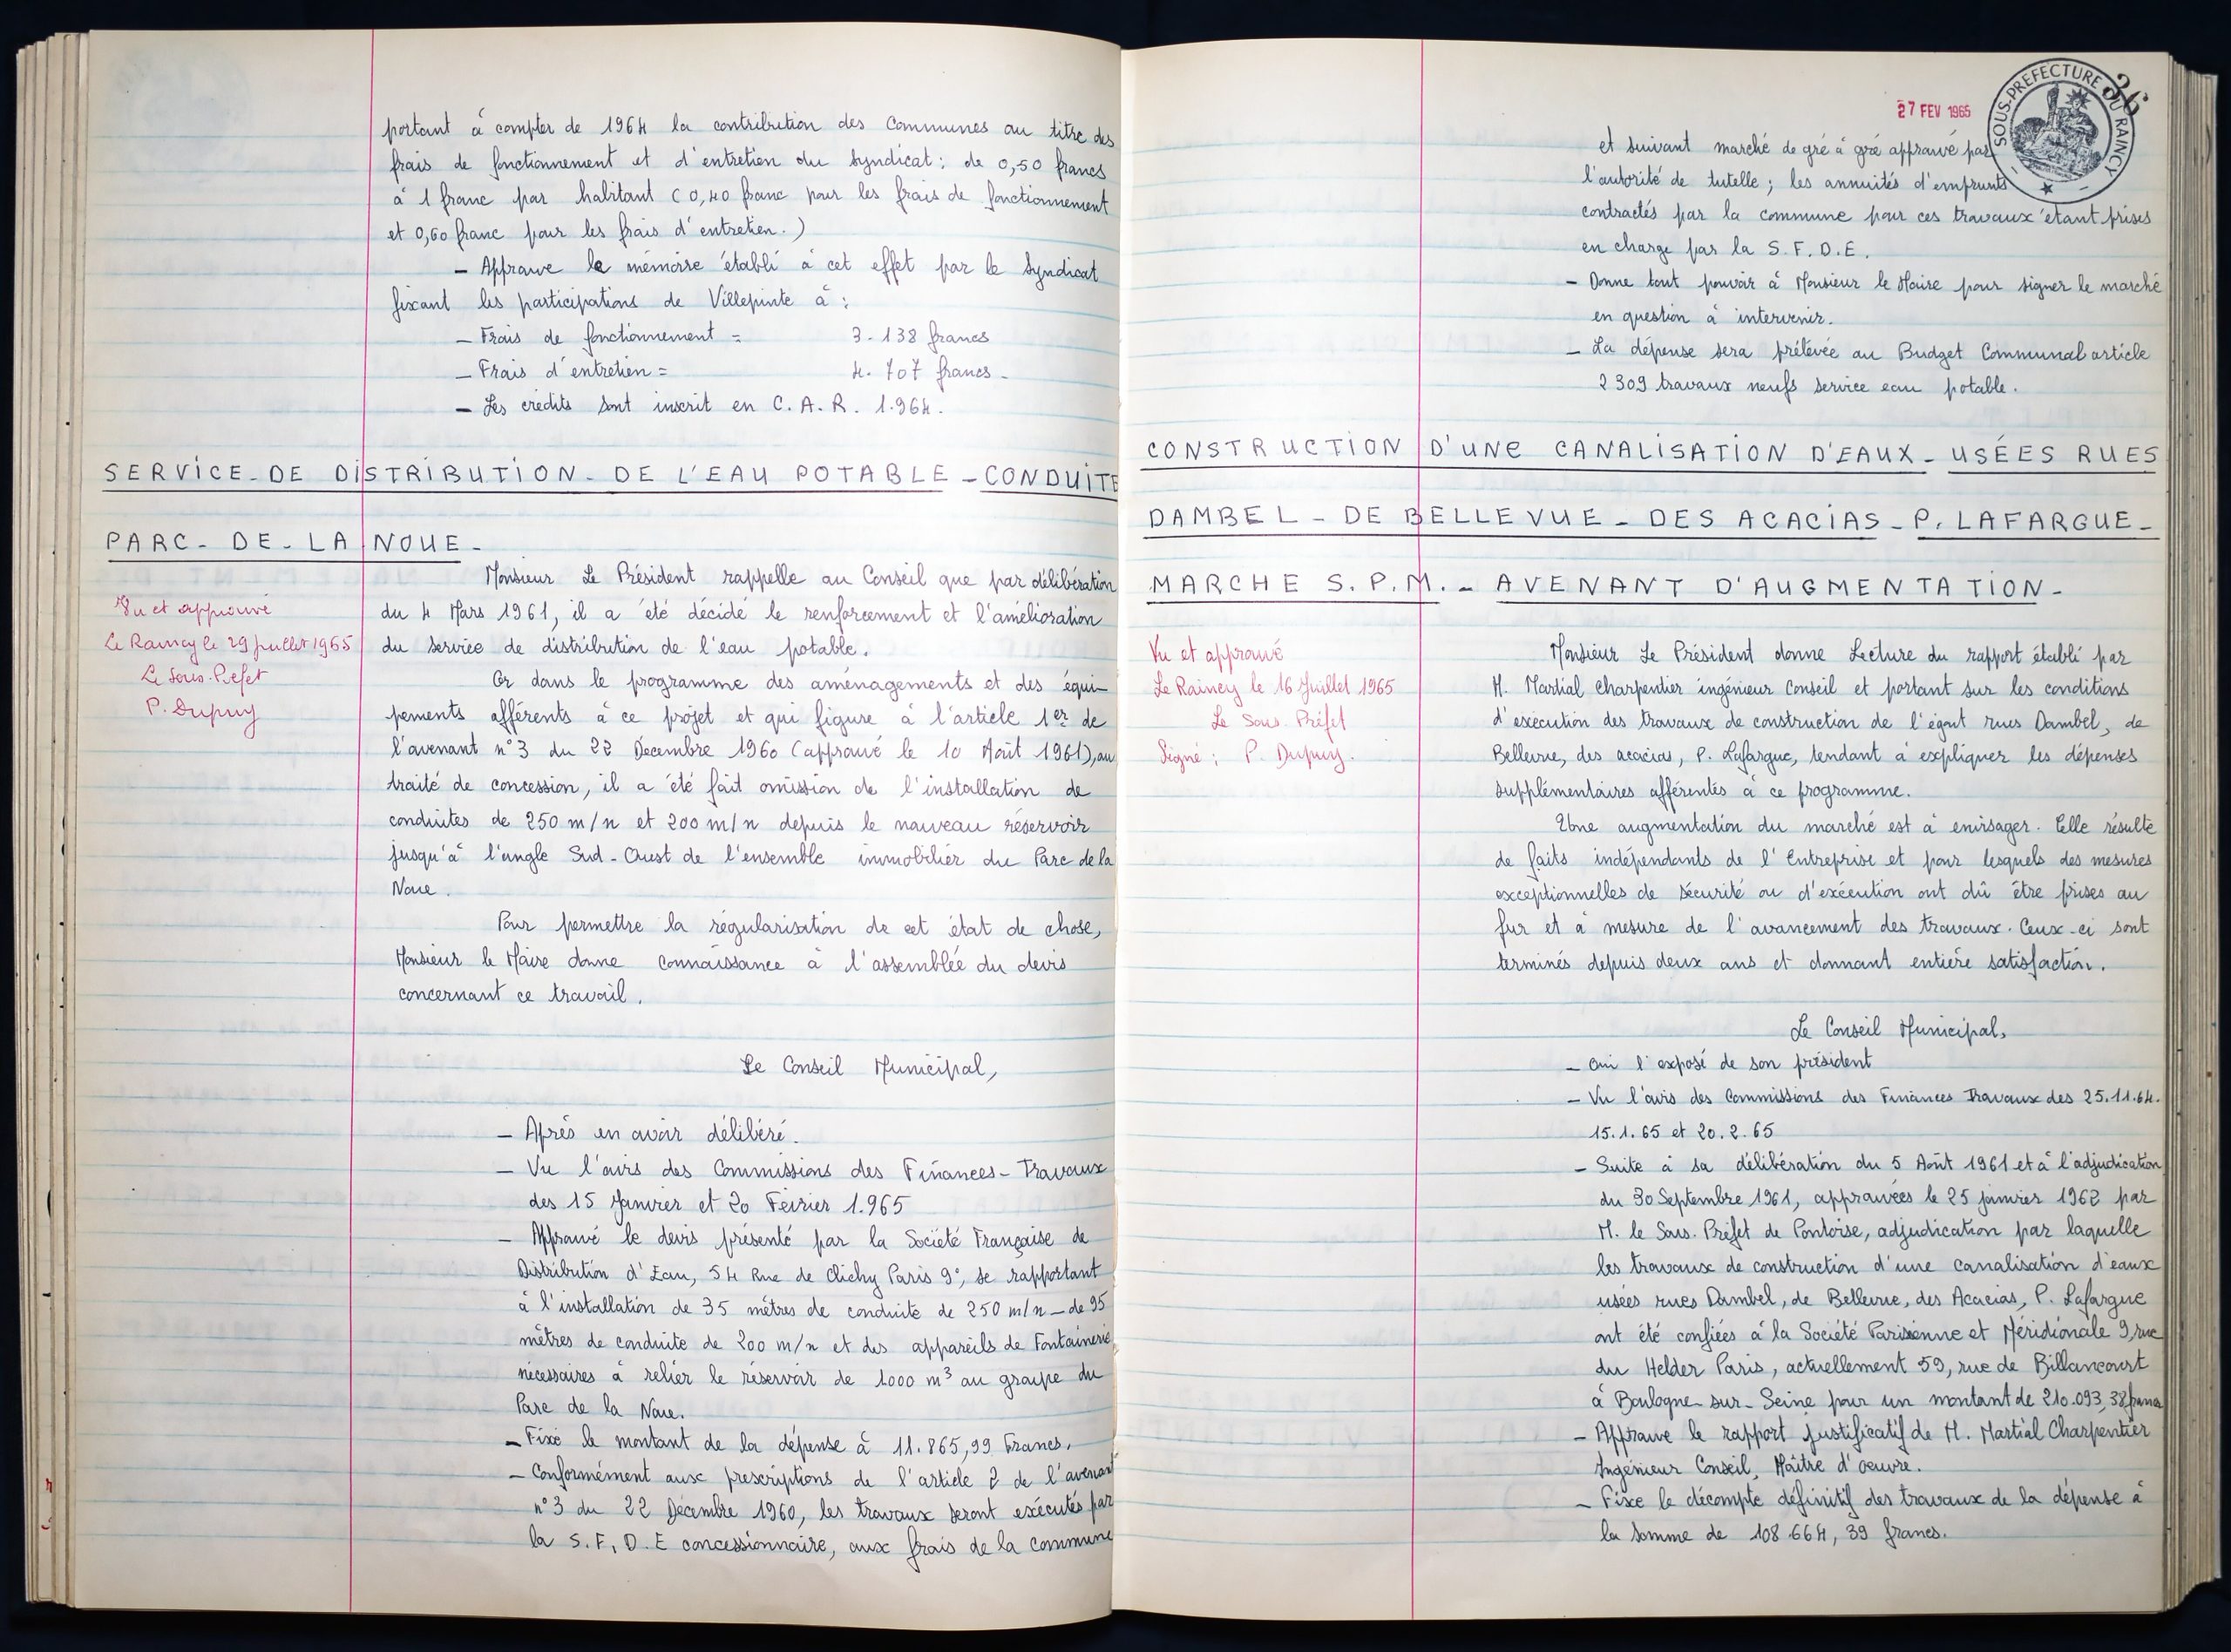 portant à compter de 1964 la contribution des Communes au titre des
frais de fonctionnement et d'entretien du Syndicat : de 0,50 francs
à 1 franc par habitant (0,40 franc pour les frais de fonctionnement
et 0,60 franc pour les frais d'entretien.)
- Approuve le mémoire établi à cet effet par le Syndicat
fixant les participations de Villepinte à :
- Frais de fonctionnement = 3.138 francs
- Frais d'entretien = 4.707 francs -
- Les crédits sont inscrit en C.A.R. 1.964.
SERVICE - DE DISTRIBUTION - DE L'EAU POTABLE - CONDUITE
PARC - DE - LA NOUE -
Vu et approuvé
Le Raincy le 29 Juillet 1965
Le Sous-Préfet
P. Dupuy
Monsieur Le Président rappelle au Conseil que par délibération
du 4 Mars 1961, il a été décidé le renforcement et l'amélioration
du service de distribution de l'eau potable.
Or dans le programme des aménagements et des équi-
pements afférents à ce projet et qui figure à l'article 1er de
l'avenant n°3 du 22 Décembre 1960 (approuvé le 10 Août 1961), au
traité de concession, il a été fait omission de l'installation de
conduites de 250 m/n et 200 m/n depuis le nouveau réservoir
jusqu'à l'angle Sud-Ouest de l'ensemble immobilier du Parc de la
Noue.
Pour permettre la régularisation de cet état de chose,
Monsieur le Maire donne connaissance à l'assemblée du devis
concernant ce travail.
Le Conseil Municipal,
- Après en avoir délibéré.
- Vu l'avis des Commissions des Finances - Travaux
des 15 Janvier et 20 Février 1.965
- Approuvé le devis présenté par la Société Française de
Distribution d'Eau, 54 Rue de Clichy Paris 9°, se rapportant
à l'installation de 35 mètres de conduite de 250 m/n - de 95
mètres de conduite de 200 m/n et des appareils de Fontainerie
nécessaires à relier le réservoir de 1000 m³ au groupe du
Parc de la Noue.
- Fixe le montant de la dépense à 11.865,99 Francs.
- Conformément aux prescriptions de l'article 2 de l'avenant
n°3 du 22 Décembre 1960, les travaux seront exécutés par
la S.F.D.E concessionnaire, aux frais de la commune
27 FEV 1965
SOUS-PREFECTURE DU RAINCY
36
et suivant marché de gré à gré approuvé par
l'autorité de tutelle ; les annuités d'emprunts
contractés par la commune pour ces travaux étant prises
en charge par la S.F.D.E.
- Donne tout pouvoir à Monsieur le Maire pour signer le marché
en question à intervenir.
- La dépense sera prélevée au Budget Communal article
2309 travaux neufs service eau potable.
CONSTRUCTION D'UNE CANALISATION D'EAUX - USÉES RUES
DAMBEL - DE BELLEVUE - DES ACACIAS - P. LAFARGUE -
MARCHE S.P.M. - AVENANT D'AUGMENTATION -
Vu et approuvé
Le Raincy le 16 Juillet 1965
Le Sous-Préfet
Signé : P. Dupuy.
Monsieur Le Président donne Lecture du rapport établi par
M. Martial Charpentier ingénieur Conseil et portant sur les conditions
d'exécution des travaux de construction de l'égout rues Dambel, de
Bellevue, des acacias, P. Lafargue, tendant à expliquer les dépenses
supplémentaires afférentés à ce programme.
Une augmentation du marché est à envisager. Elle résulte
de faits indépendants de l'Entreprise et pour lesquels des mesures
exceptionnelles de sécurité ou d'exécution ont dû être prises au
fur et à mesure de l'avancement des travaux. Ceux-ci sont
terminés depuis deux ans et donnant entière satisfaction.
Le Conseil Municipal,
- Oui l'exposé de son président
- Vu l'avis des Commissions des Finances Travaux des 25.11.64.
15.1.65 et 20.2.65
- Suite à sa délibération du 5 Août 1961 et à l'adjudication
du 30 Septembre 1961, approuvées le 25 janvier 1962 par
M. le Sous-Préfet de Pontoise, adjudication par laquelle
les travaux de construction d'une canalisation d'eaux
usées rues Dambel, de Bellevue, des Acacias, P. Lafargue
ont été confiées à la Société Parisienne et Méridionale 9, rue
du Helder Paris, actuellement 59, rue de Billancourt
à Boulogne-sur-Seine pour un montant de 210.093,38 francs
- Approuve le rapport justificatif de M. Martial Charpentier
Ingénieur Conseil, Maître d'oeuvre.
- Fixe le décompte définitif des travaux de la dépense à
la somme de 108.664,39 francs.